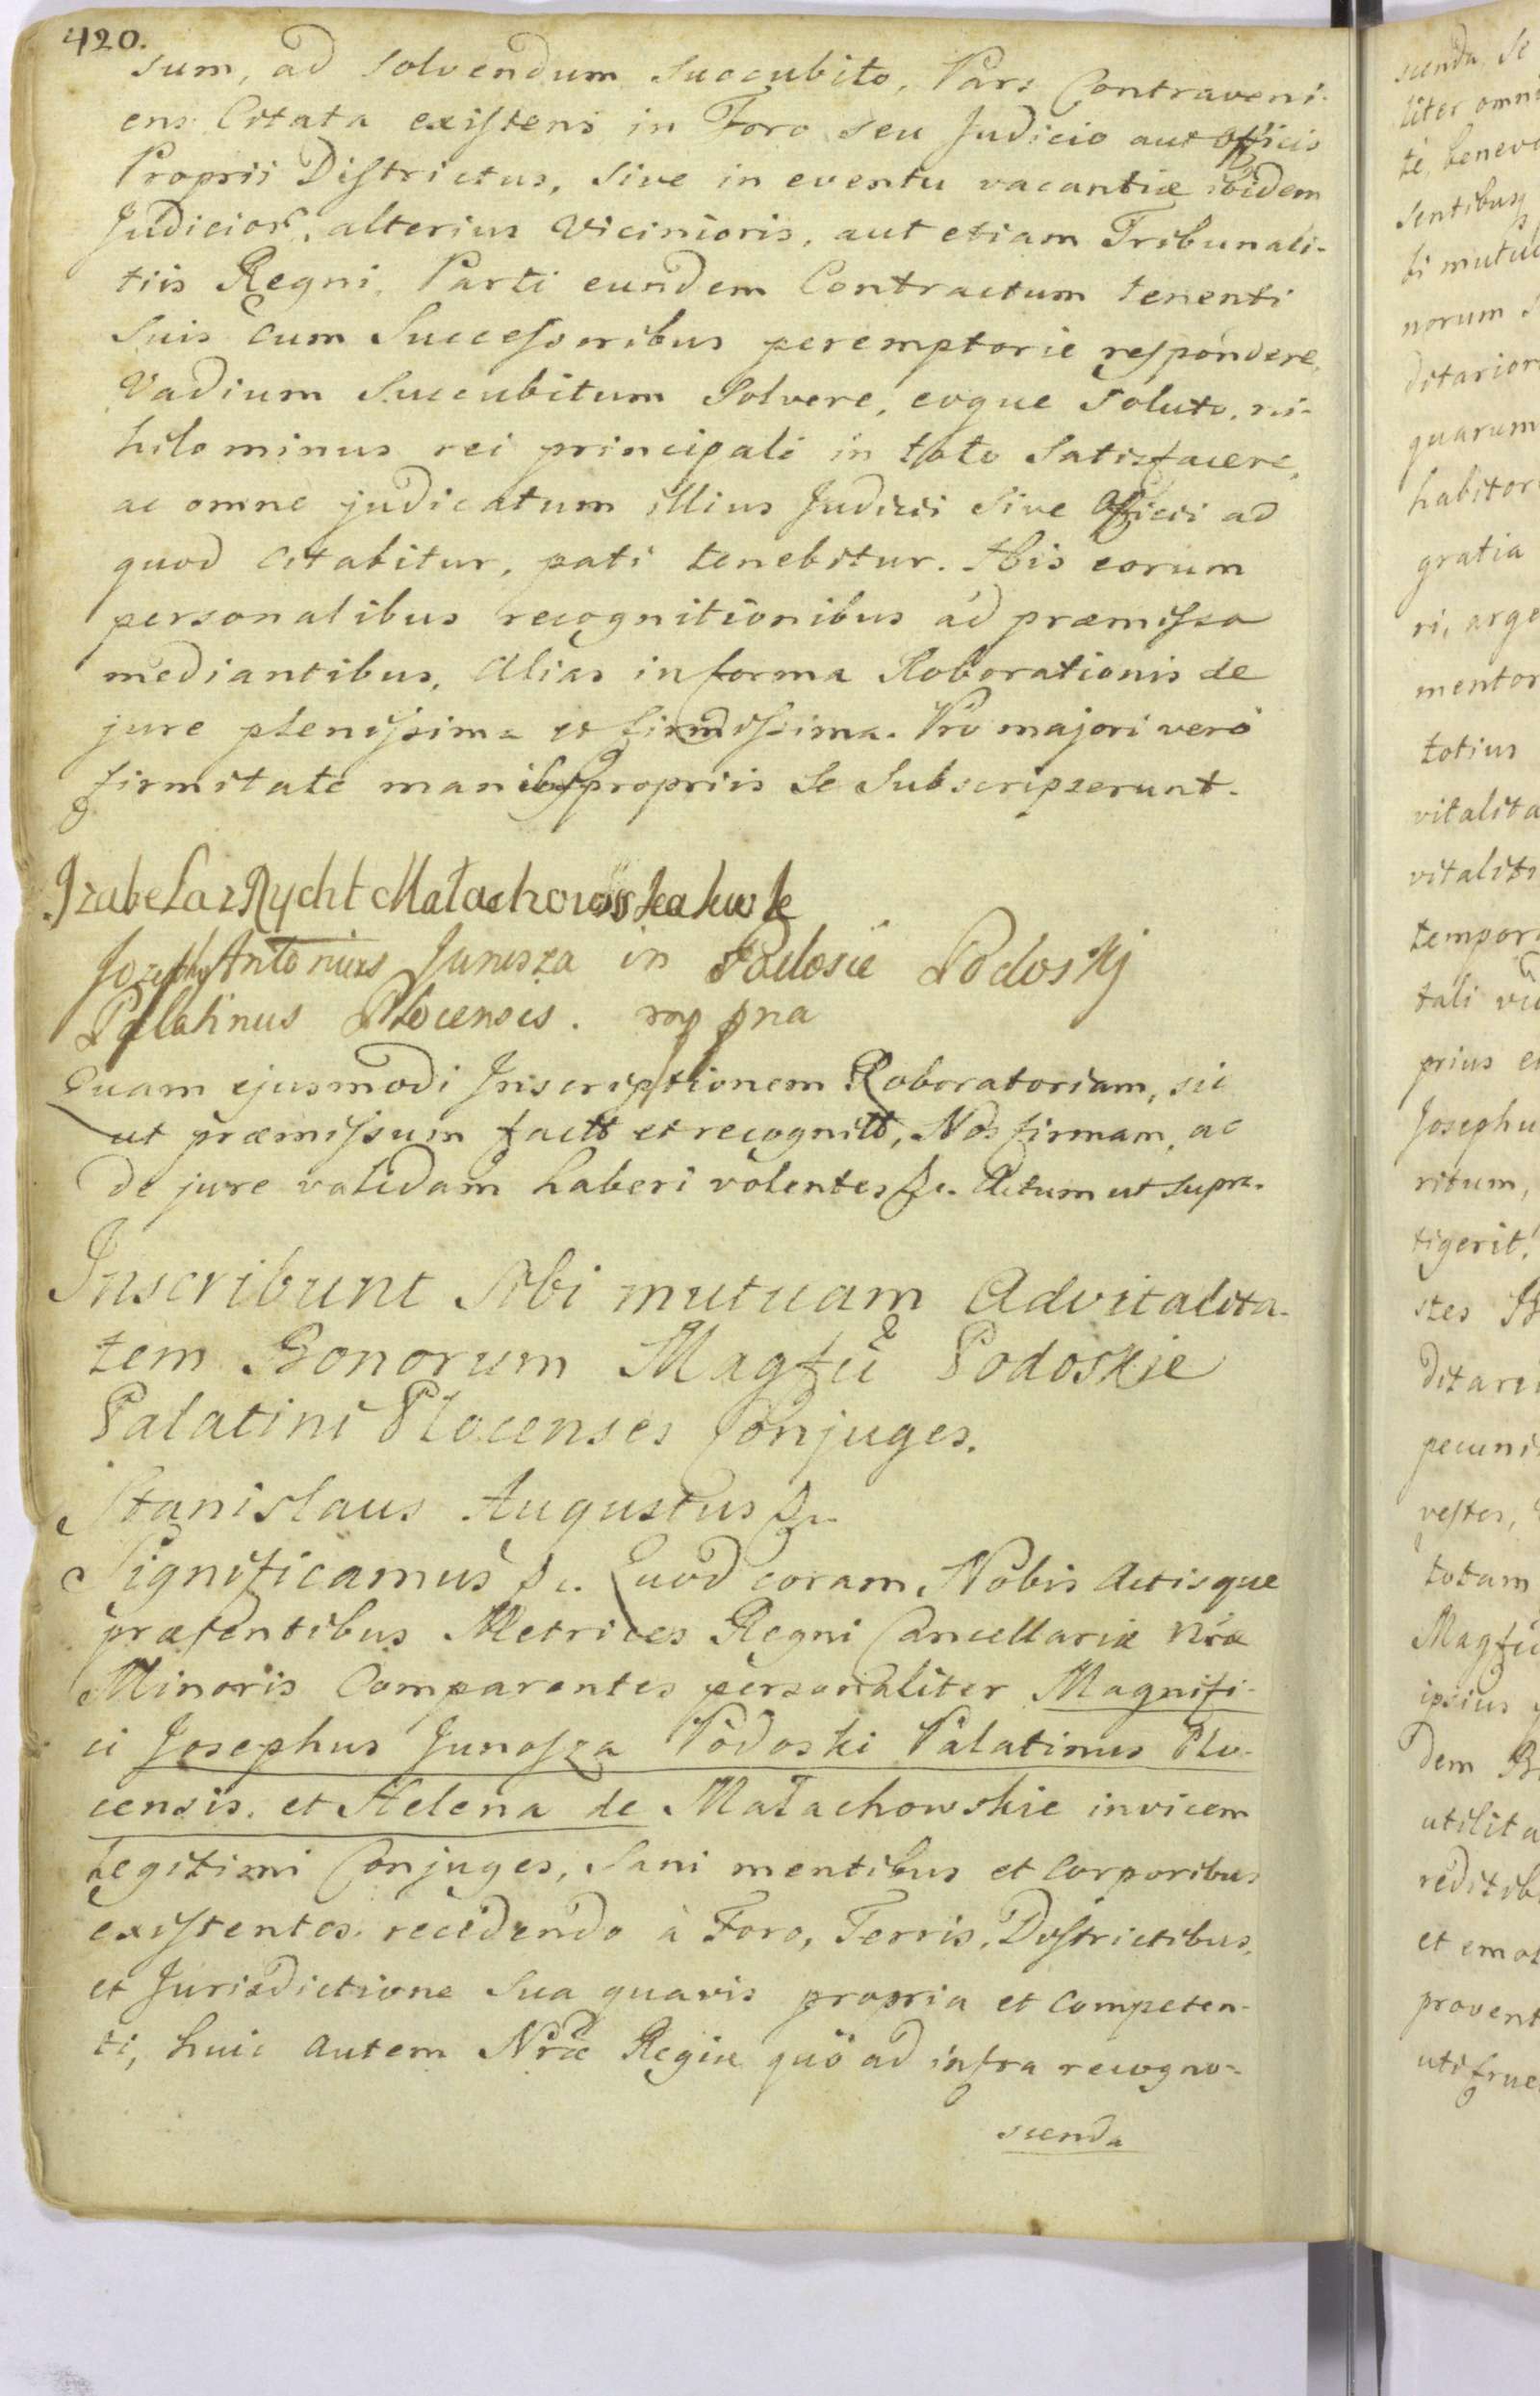 420.
sum, ad solvendum succubito, Pars Contraveni-
ens Citata existens in Foro seu Judicio aut Officis
Proprii Districtus, sive in eventu vacantiæ ibidem
Judicior, alterius Vicinioris, aut etiam Tribunali-
tiis Regni, Parti eundem Contractum tenenti
Suis cum Successoribus peremptorie respondere,
Vadium Succubitum Solvere, eoque Soluto, ni-
hilominus rei principali in toto Satisfacere,
ac omne judicatum illius Judicii Sive Officii ad
quod Citabitur, pati tenebitur. His eorum
personalibus recognitionibus ad præmissa
mediantibus, Alias in forma Roborationis de
jure plenissima et firmissima. Pro majori vero
firmitate manibus propriis Se Subscripserunt.
Izabela z Rycht Małachowska
Jozephus Antonius Junosza in Podosie Podoskj
Palatinus Plocensis. mp pna
Quam ejusmodi Inscriptionem Roboratoriam, sic
ut præmissum factt et recognitt, Nos firmam, ac
de jure validam haberi volentes &c. Actum ut supra.
Inscribunt Sibi mutuam Advitalita-
tem Bonorum Magfii Podoskie
Palatini Plocenses Conjuges.
Stanislaus Augustus &c.
Significamus &c. Quod coram Nobis Actisque
præsentibus Metrices Regni Cancellariæ Nræ
Minoris Comparentes personaliter Magnifi-
ci Josephus Junosza Podoski Palatinus Plo-
censis, et Helena de Małachowskie invicem
Legitimi Conjuges, Sani mentibus et Corporibus
existentes, recedendo à Foro, Terris, Districtibus,
et Jurisdictione Sua quavis propria et Competen-
ti, huic autem Nræ Regiæ quò ad infra recogno-
scenda
scenda Se
liter omn
te, benevo
sentibus
si mutu
norum
ditarior
quarum
habitor
gratia
ri, arge
mentor
totius
vitalita
vitalita
tempor
tali
prius e
Josephu
ritum,
tigerit,
stes
ditari
pecuni
vestes,
totam
Magfic
ipsius
dem B
utilita
reditib
et emol
provent
utifrue